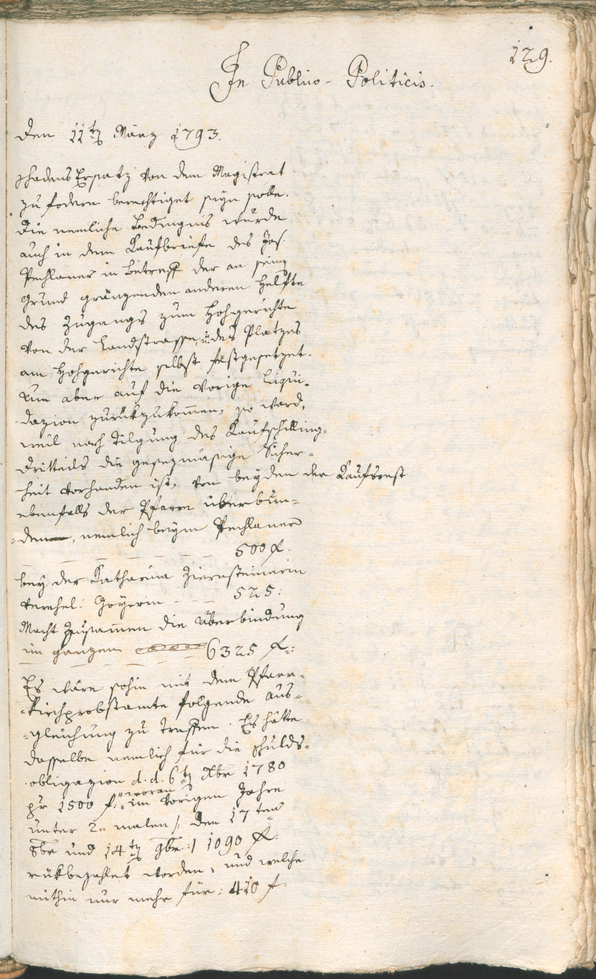 129.
In Publico-Politicis.
den 11ten März 1793.
schadensErsatz von dem Magistrat
zu fodern berechtiget seyn solle.
Die nemliche Bedingnis wurde
auch in dem Kaufbriefe des Jos.
Pechlaner in Betreff der an sein
Grund gränzenden anderen Helfte
des Zugangs zum Hohgerichte
von der Landstrasse, u: des Platzes
am Hohgerichte selbst festgesetzet.
Um aber auf die vorige Liqui-
dazion zurükzukommen, so ward,
weil nach Tilgung des Kaufschilling-
Drittails die gesezmäsige Sicher-
heit vorhanden ist, von beyden der Kaufsrest
ebenfalls der Pfarre überbun-
den, nemlich beym Pechlaner
500 f.
bey der Katharina Ziernsteinerin
verehel: Hoyerin 525.
Macht zusamen die Überbindung
im ganzen 6325 f.:
Es wäre sohin mit dem Pfarr-
kirchprobstamte folgende Aus-
gleichung zu treffen. Es hätte
dasselbe nemlich für die Schulds-
obligazion d. d. 6t Xbr 1780
pr 1500 f., woran im vorigen Jahre
unter 2 malen /: den 17ten
8br und 14t 9br :/ 1090 f.
rükbezahlet worden, und welche
mithin nur mehr für: 410 f.